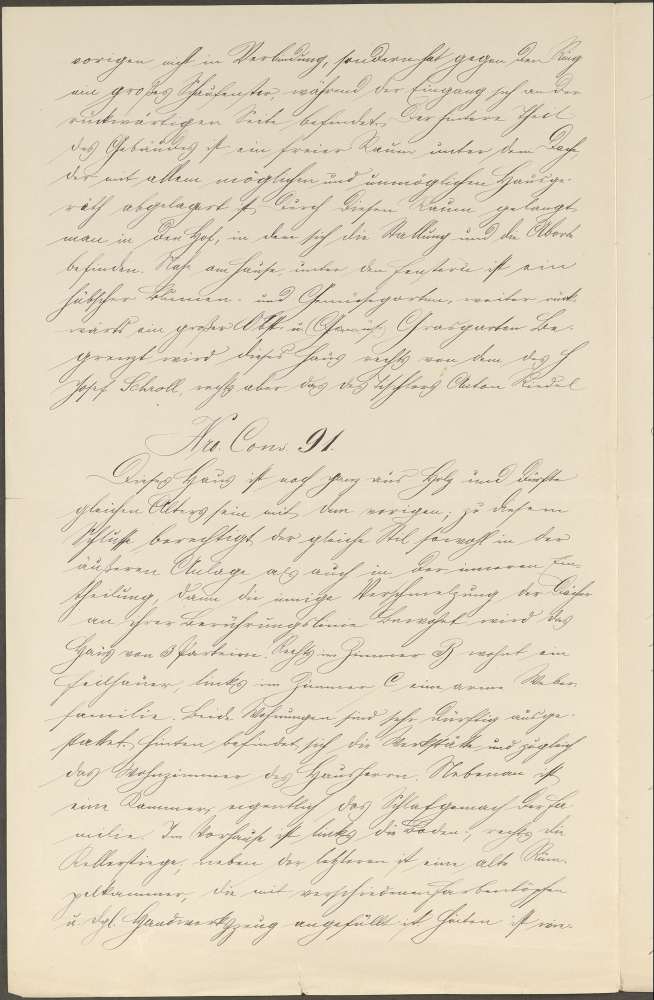 vorigen nicht in Verbindung, sondern hat gegen den Ring
ein großes Schaufenster, während der Eingang sich an der
rückwärtigen Seite befindet. Der hintere Theil
des Gebäudes ist ein freier Raum unter dem Dache,
der mit allem möglichen und unmöglichen Hausge-
räth abgelagert ist. Durch diesen Raum gelangt
man in den Hof, in dem sich die Stallung und die Aborte
befinden. Nahe am Hause, unter den Fenstern ist ein
hübscher Blumen- und Gemüsegarten, weiter rück-
wärts ein großer Obst- u. Grasgarten. Be-
grenzt wird dieses Haus rechts von dem des H
Josef Schroll, rechts aber das des Tischlers Anton Riedel
Nro. Cons. 91.
Dieses Haus ist noch ganz aus Holz und dürfte
gleichen Alters sein mit dem vorigen; zu diesem
Schlusse berechtigt der gleiche Stil sowohl in der
äußeren Anlage als auch in der inneren Ein-
theilung, dann die innige Verschmelzung der Dächer
an ihrer Berührungslinie. Bewohnt wird das
Haus von 3 Parteien. Rechts im Zimmer B wohnt ein
Feilhauer, links im Zimmer C eine arme Weber-
familie. Beide Wohnungen sind sehr dürftig ausge-
stattet. Hinten befindet sich die Werkstätte und zugleich
das Wohnzimmer des Hausherrn. Nebenan ist
eine Kammer, eigentlich das Schlafgemach der Fa-
milie. Im Vorhause ist links die Boden-, rechts die
Kellerstiege, neben der letzteren ist eine alte Rum-
pelkammer, die mit verschiedenen Farbentöpfen
u. dgl. Handwerkszeug angefüllt ist. Hinten ist ein